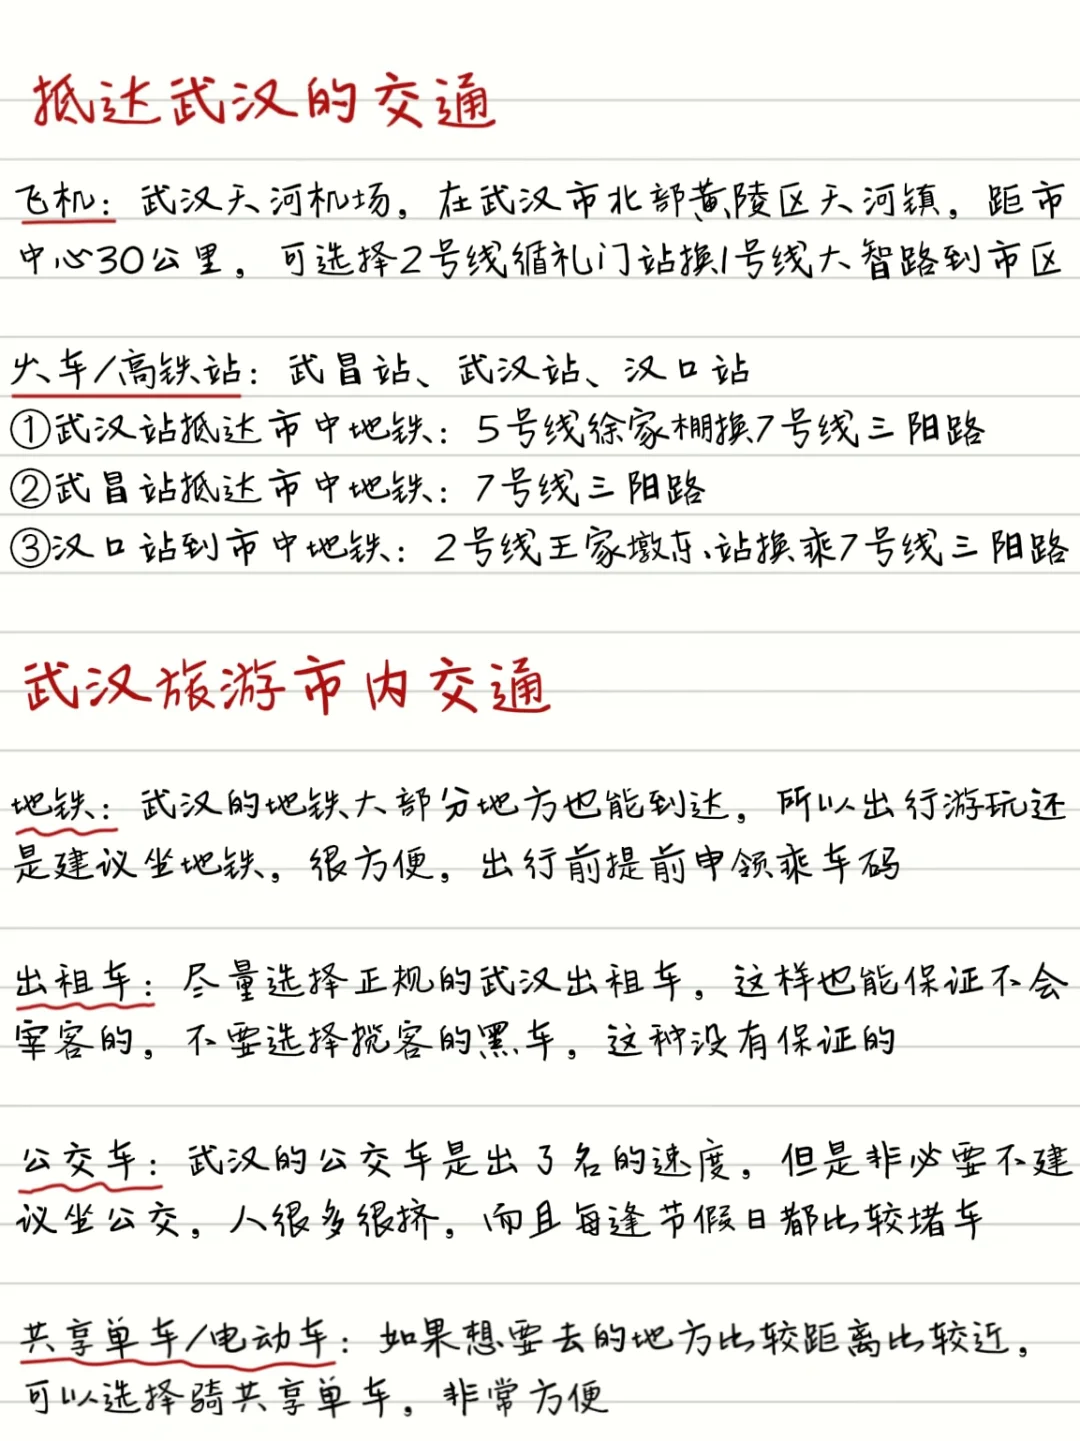 抵达武汉的交通
飞机：武汉天河机场，在武汉市北部黄陵区天河镇，距市
中心30公里，可选择2号线循礼门站换1号线大智路到市区
火车/高铁站：武昌站、武汉站、汉口站
①武汉站抵达市中地铁：5号线徐家棚换7号线三阳路
②武昌站抵达市中地铁：7号线三阳路
③汉口站到市中地铁：2号线王家墩东站换乘7号线三阳路
武汉旅游市内交通
地铁：武汉的地铁大部分地方也能到达，所以出行游玩还
是建议坐地铁，很方便，出行前提前申领乘车码
出租车：尽量选择正规的武汉出租车，这样也能保证不会
宰客的，不要选择揽客的黑车，这种没有保证的
公交车：武汉的公交车是出了名的速度，但是非必要不建
议坐公交，人很多很挤，而且每逢节假日都比较堵车
共享单车/电动车：如果想要去的地方比较距离比较近，
可以选择骑共享单车，非常方便